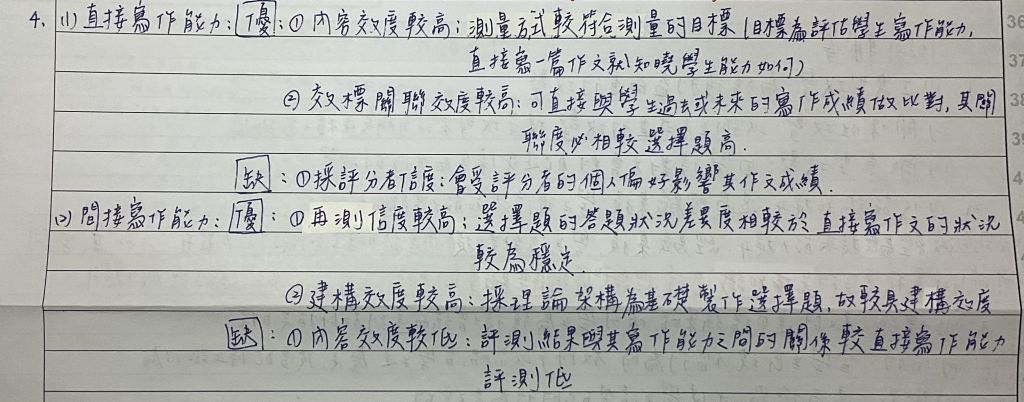 4. (1) 直接寫作能力：優：① 內容效度較高：測量方式較符合測量的目標(目標為評估學生寫作能力,
直接寫一篇作文就知曉學生能力如何)
② 效標關聯效度較高：可直接與學生過去或未來的寫作成績做比對, 其關
聯度必相較選擇題高.
缺：① 採評分者信度：會受評分者的個人偏好影響其作文成績.
(2) 間接寫作能力：優：① 再測信度較高：選擇題的答題狀況差異度相較於直接寫作文的狀況
較為穩定.
② 建構效度較高：採理論架構為基礎製作選擇題, 故較具建構效度
缺：① 內容效度較低：評測結果與其寫作能力之間的關係較直接寫作能力
評測低
36
37
38
39